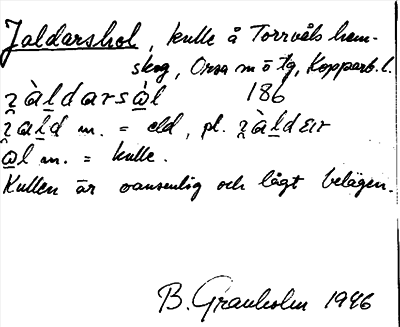 Jaldarshol, kulle å Torrvåls hem-
skog, Orsa sn o tg, Kopparb. l.
ʒàldarsàl 186
ʒald m. = eld, pl. ʒàldɛr
al m. = kulle.
Kullen är oansenlig och lågt belägen.
B. Granholm 1946